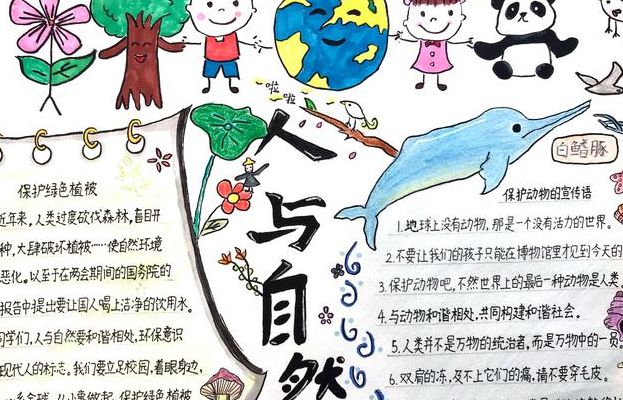 啦
啦
人
与
自
然
白鳍豚
保护绿色植被
近年来,人类过度砍伐森林,盲目开
种,大肆破坏植被……使自然环境
恶化。以至于在两会期间的国务院的
报告中提出要让国人喝上洁净的饮用水。
同学们,人与自然要和谐相处,环保意识
现代人的标志,我们要立足校园,着眼身边,
保护动物的宣传语
1.地球上没有动物,那是一个没有活力的世界。
2.不要让我们的孩子只能在博物馆里才见到今天的
3.保护动物吧,不然世界上的最后一种动物是人类
4.与动物和谐相处,共同构建和谐社会。
5.人类并不是万物的统治者,而是万物中的一员
6.双肩的冻,及不上它们的痛,请不要穿毛皮。